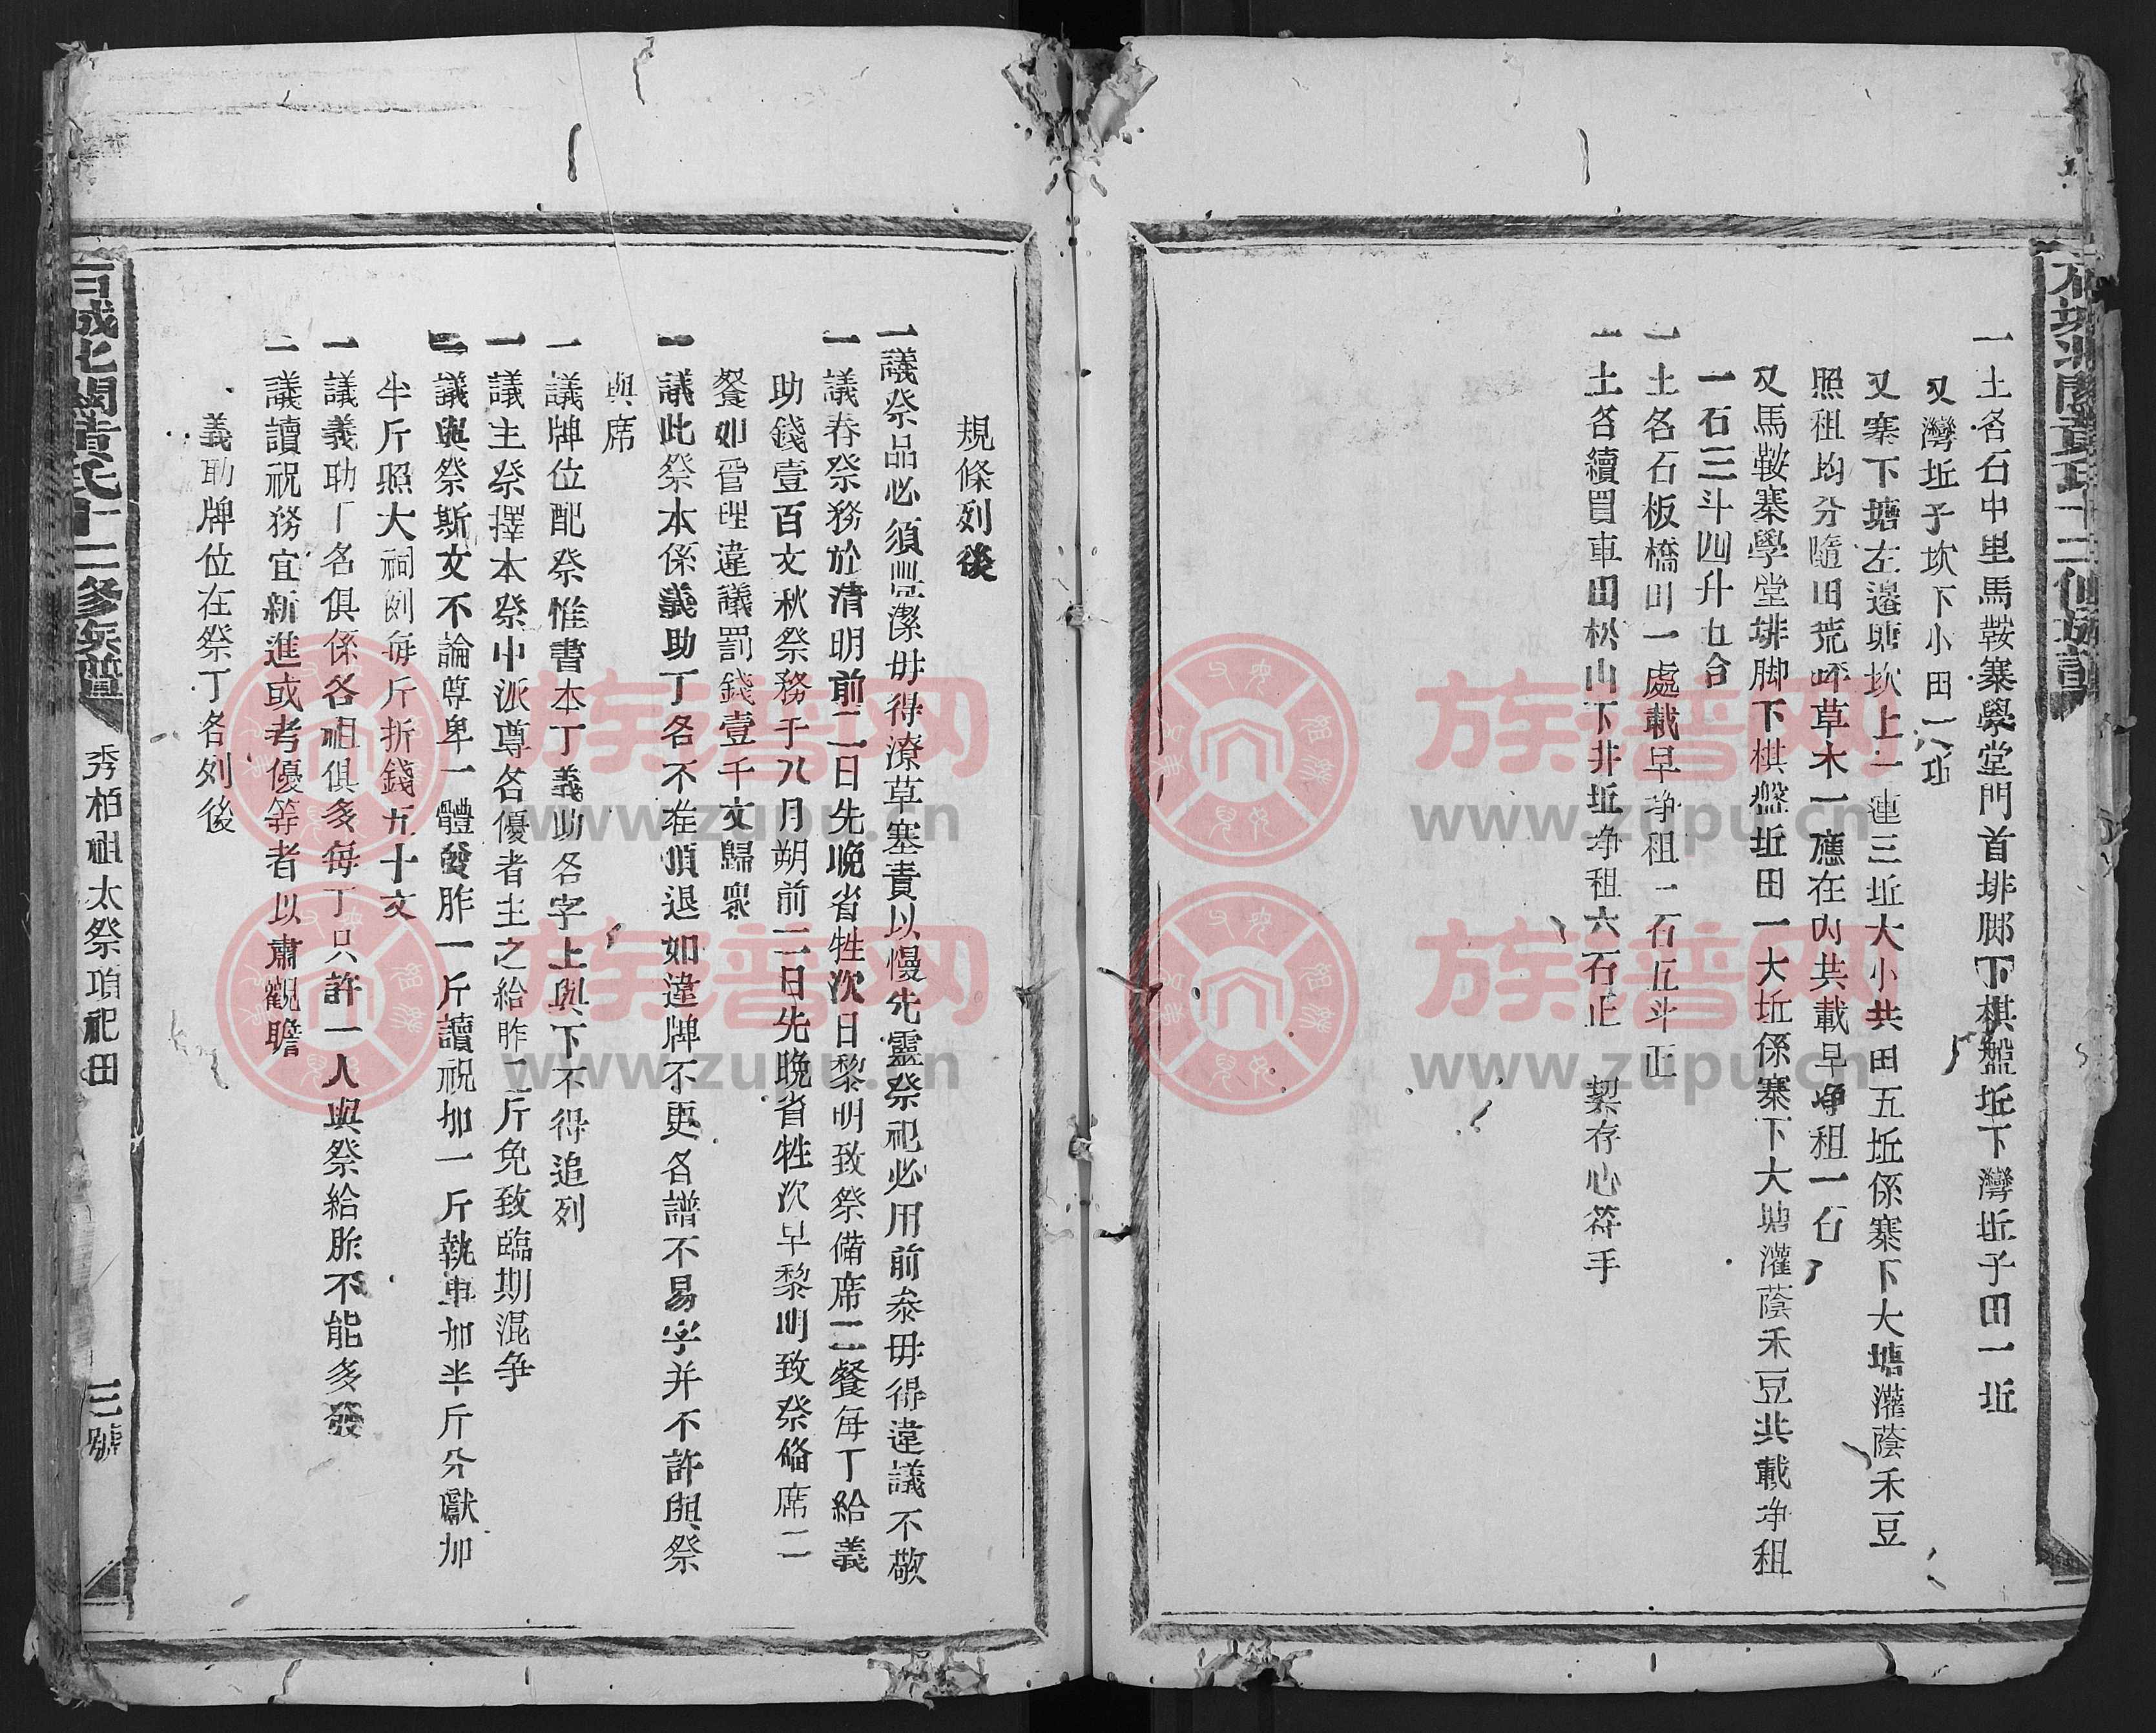 一土名石中里馬鞍寨學堂門首排脚下棋盤坵下灣坵子田一坵
又灣坵子坎下小田一八坵
又寨下塘左邊塘坎上一連三坵大小共田五坵係寨下大塘灌蔭禾豆
照租均分隨田荒坪草木一應在內共載早净租一石
又馬鞍寨學堂排脚下棋盤坵田一大坵係寨下大塘灌蔭禾豆共載净租
一石三斗四升五合
一土名石板橋田一處載早净租一石五斗正
一土名續買車田松山下井坵净租六石正 契存心符手
規條列後
一議祭品必須豐潔毋得潦草塞責以慢先靈祭祀必用前叅毋得違議不敬
一議春祭務於清明前二日先晚省牲次日黎明致祭備席二餐每丁給義
助錢壹百文秋祭務于八月朔前二日先晚省牲次早黎明致祭俻席二
餐如管理違議罰錢壹千文歸衆
一議此祭本係義助丁名不准頂退如違牌不更名譜不易字并不許與祭
與席
一議牌位配祭惟書本丁義助名字上與下不得追列
一議主祭擇本祭中派尊名優者主之給胙二斤免致臨期混争
一議與祭斯文不論尊卑一體發胙一斤讀祝加一斤執事加半斤分獻加
半斤照大祠例每斤折錢五十文
一議義助丁名俱係各祖俱多每丁只許一人與祭給胙不能多發
一議讀祝務宜新進或考優等者以肅觀瞻
義助牌位在祭丁名列後
石城北關黃氏十二修族譜
秀栢祖太祭項祀田
三號